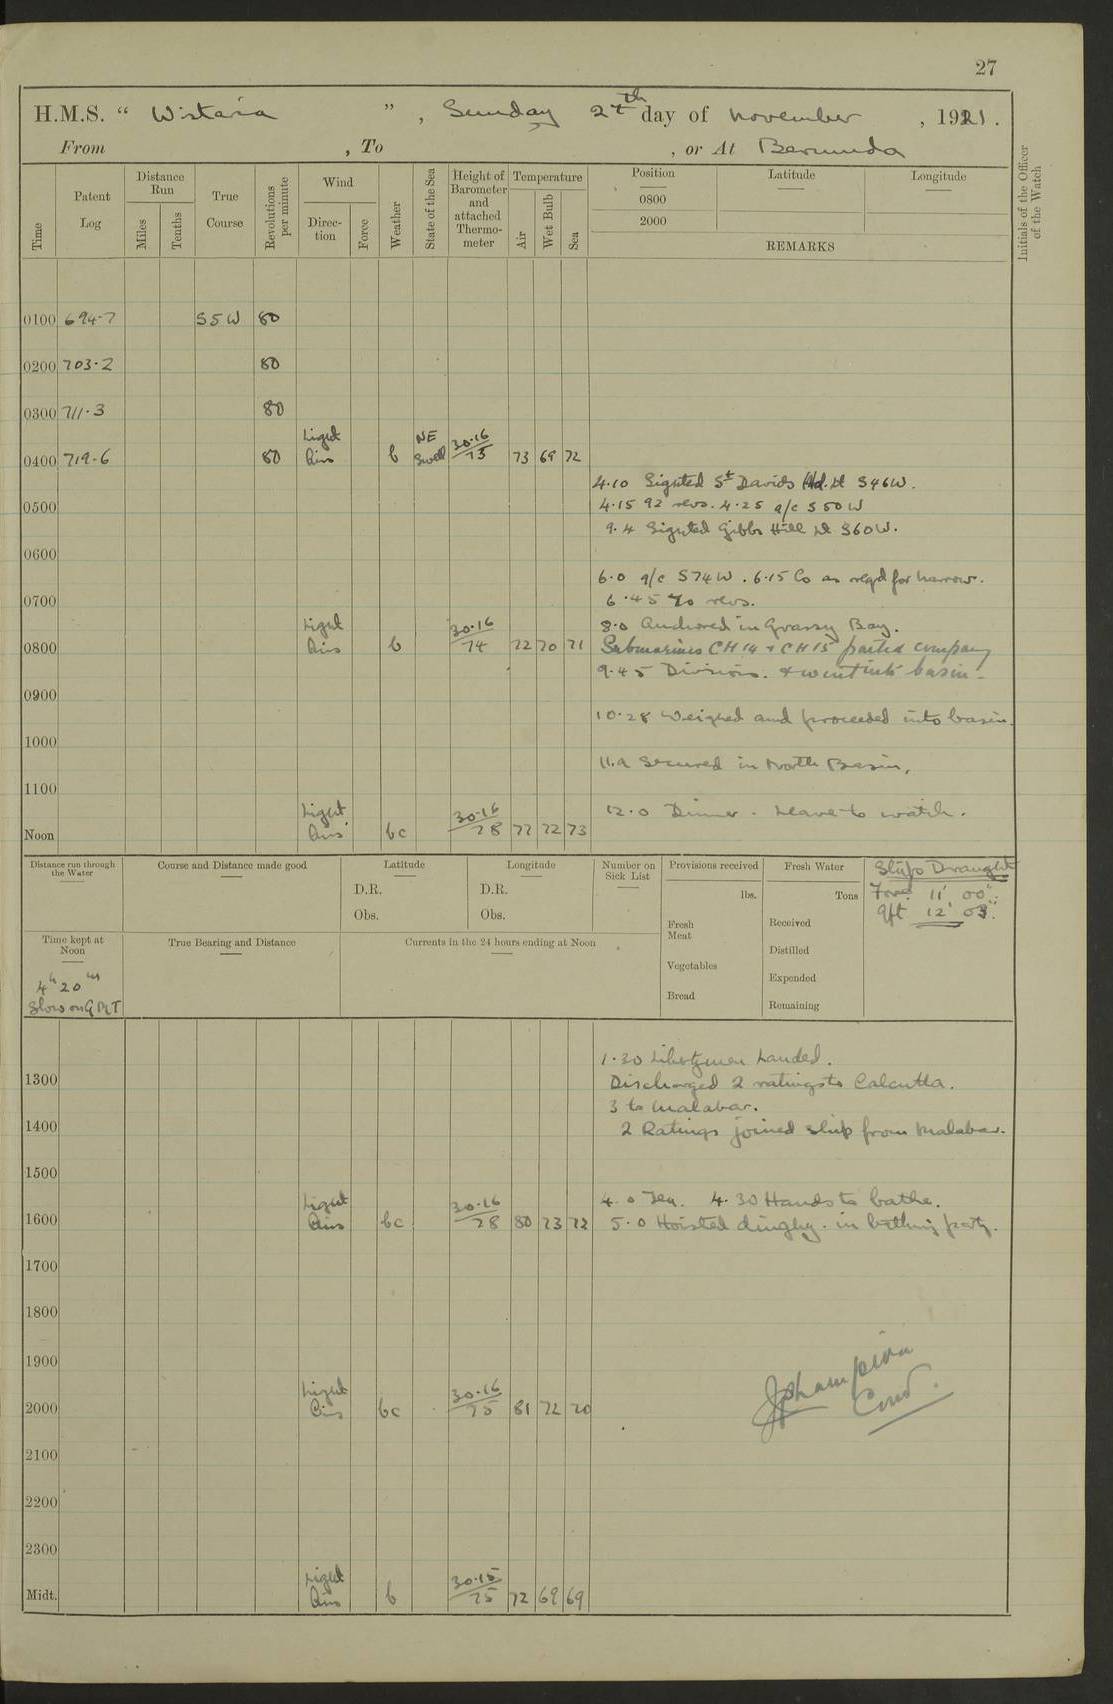 27
H.M.S. " Wistaria ", Sunday 27th day of November, 1921.
From , To , or At Bermuda
Time
Patent Log
Distance Run
Miles
Tenths
True Course
Revolutions per minute
Wind
Direction
Force
Weather
State of the Sea
Height of Barometer and attached Thermometer
Temperature
Air
Wet Bulb
Sea
Position
0800
2000
Latitude
Longitude
REMARKS
Initials of the Officer of the Watch
0100 694.7 S5W 80
0200 703.2 80
0300 711.3 80
0400 719.6 80 Light Airs b NE Swell 30.16/75 73 69 72
4.10 Sighted St Davids Hd. Lt S46W.
0500 4.15 92 revs. 4.25 a/c S50W
9.4 Sighted Gibbs Hill Lt S60W.
0600
6.0 a/c S74W. 6.15 Co as reqd for narrow.
0700 6.45 70 revs.
8.0 Anchored in Grassy Bay.
0800 Light Airs b 30.16/74 72 70 71 Submarines CH 14 + CH 15 parted company
9.45 Divisions. + went into basin.
0900
10.28 Weighed and proceeded into basin.
1000
11.9 Secured in North Basin.
1100
12.0 Dinner. Leave to watch.
Noon Light Airs bc 30.16/78 77 72 73
Distance run through the Water
Course and Distance made good
Latitude
D.R.
Obs.
Longitude
D.R.
Obs.
Number on Sick List
Provisions received
lbs.
Fresh Meat
Vegetables
Bread
Fresh Water
Tons
Received
Distilled
Expended
Remaining
Ships Draught
Ford 11' 00"
Aft 12' 03"
Time kept at Noon
4h 20m
Slow on GMT
True Bearing and Distance
Currents in the 24 hours ending at Noon
1.30 Libertymen Landed.
1300 Discharged 2 ratings to Calcutta.
3 to Malabar.
1400 2 Ratings joined ship from Malabar.
1500
4.0 Tea. 4.30 Hands to bathe.
1600 Light Airs bc 30.16/78 80 73 72 5.0 Hoisted dinghy. in bathing party.
1700
1800
1900
2000 Light Airs bc 30.16/75 81 72 70
JPChampion
Comd.
2100
2200
2300
Midt. Light Airs b 30.15/75 72 69 69